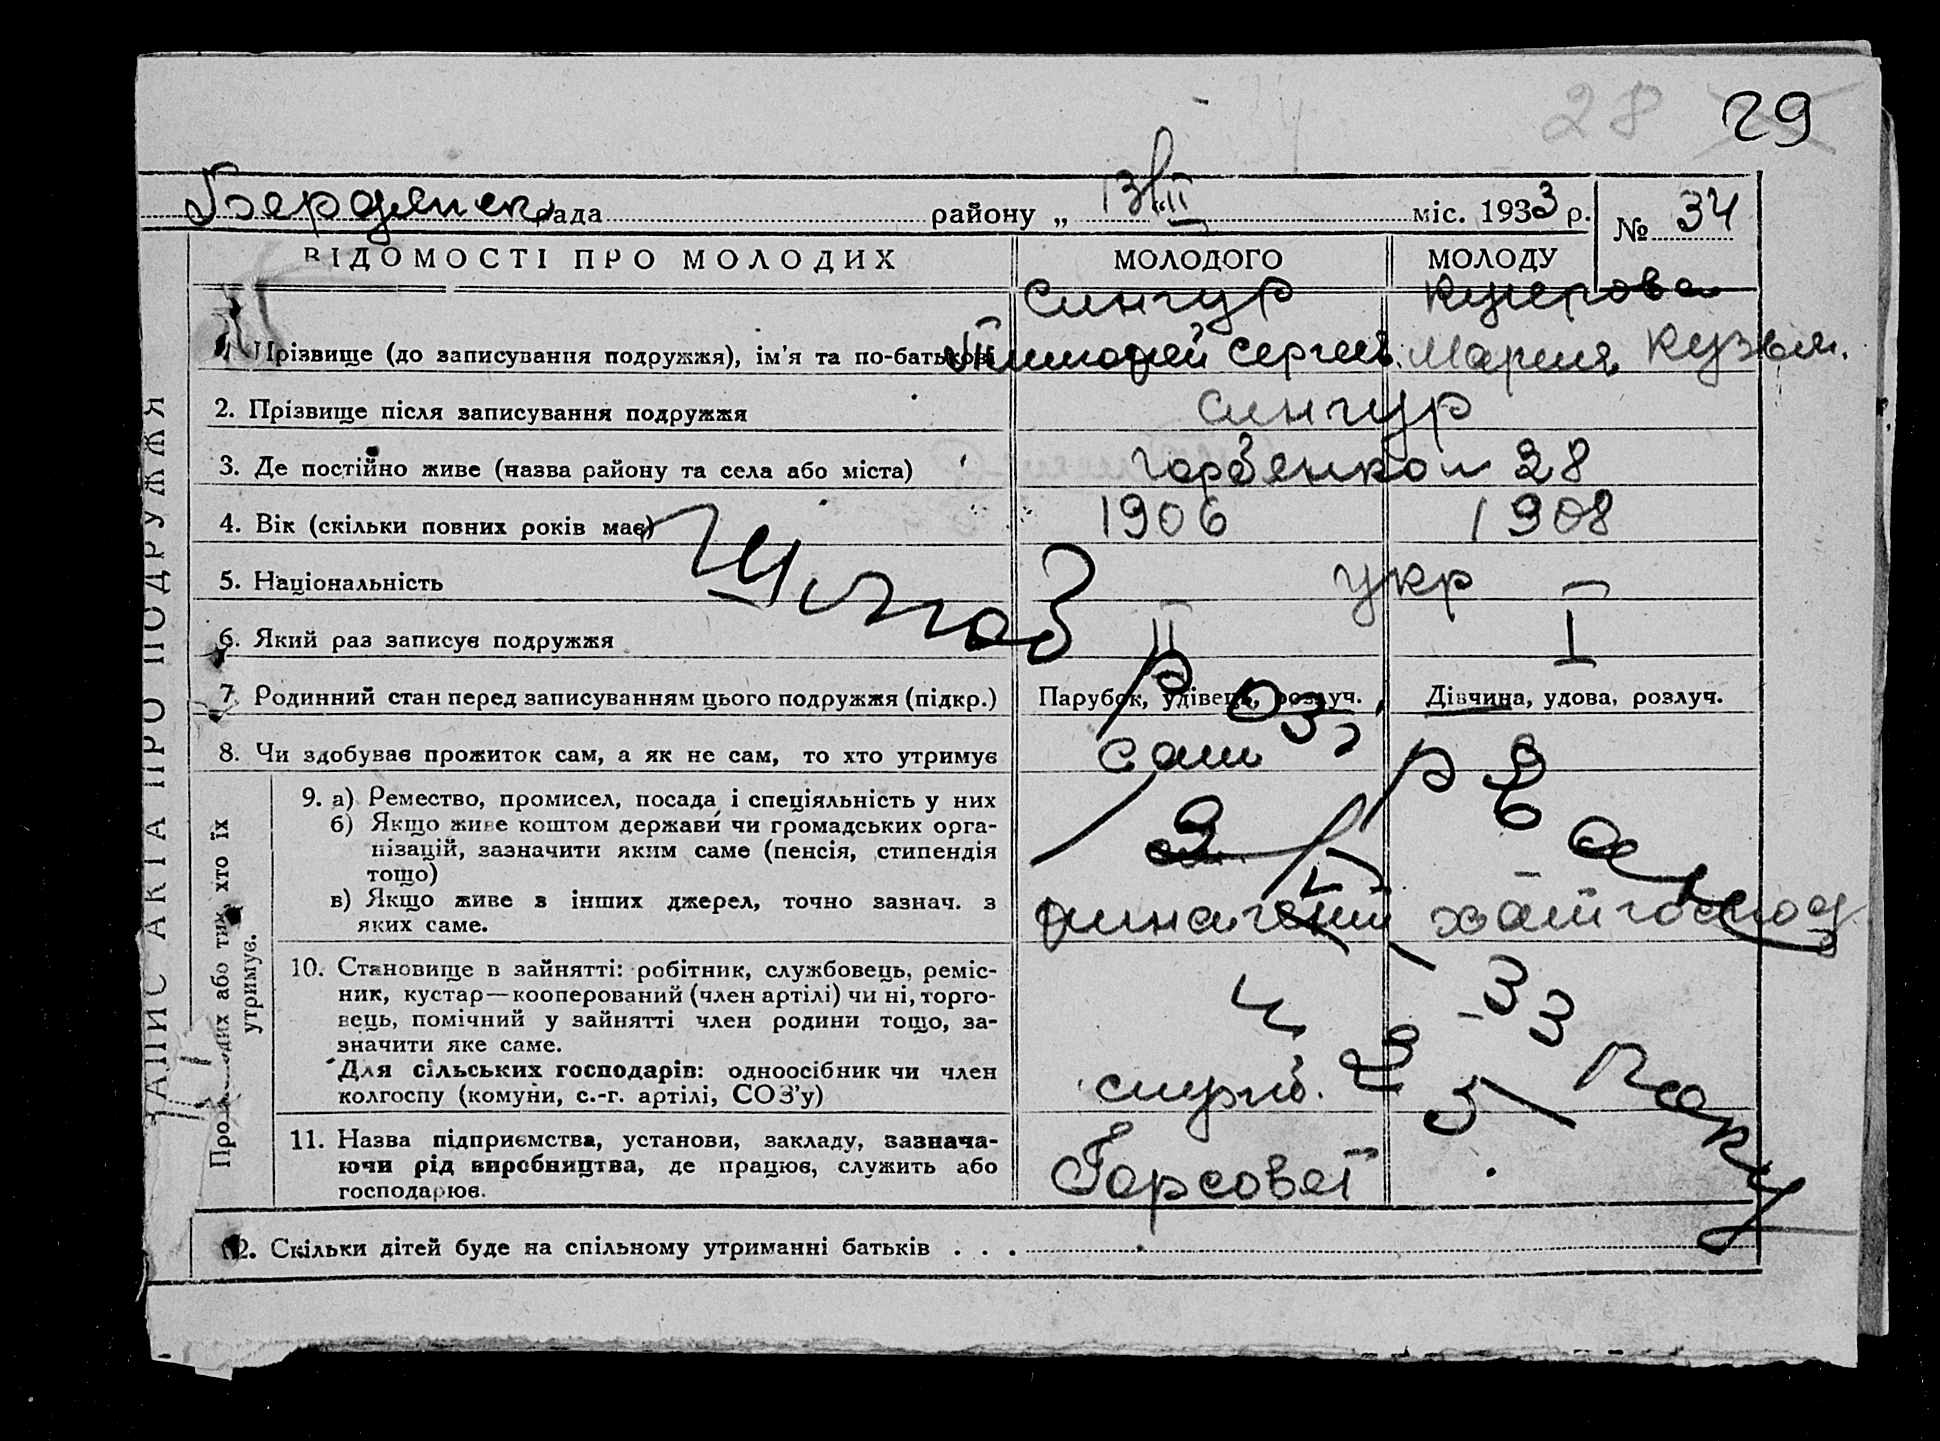 28 29
Бердянськ рада району „13/II міс. 1933 р. № 34
ВІДОМОСТІ ПРО МОЛОДИХ МОЛОДОГО МОЛОДУ
Сингур
1. Прізвище (до записування подружжя), ім'я та по-батькові Тимофей Сергеев. Мария Кузьм.
2. Прізвище після записування подружжя Сингур
3. Де постійно живе (назва району та села або міста) 28
4. Вік (скільки повних років має) 1906 1908
5. Національність укр
6. Який раз записує подружжя II I
7. Родинний стан перед записуванням цього подружжя (підкр.) Парубок, удівець, розлуч. Дівчина, удова, розлуч.
8. Чи здобуває прожиток сам, а як не сам, то хто утримує сам
9. а) Ремество, промисел, посада і спеціяльність у них
б) Якщо живе коштом держави чи громадських орга-
нізацій, зазначити яким саме (пенсія, стипендія
тощо)
в) Якщо живе з інших джерел, точно зазнач. з
яких саме.
10. Становище в зайнятті: робітник, службовець, реміс-
ник, кустар—кооперований (член артілі) чи ні, торго-
вець, помічний у зайнятті член родини тощо, за-
значити яке саме.
Для сільських господарів: одноосібник чи член
колгоспу (комуни, с.-г. артілі, СОЗ'у) служб.
11. Назва підприємства, установи, закладу, зазнача-
ючи рід виробництва, де працює, служить або
господарює. Горсовет
12. Скільки дітей буде на спільному утриманні батьків . . .
ЗАПИС АКТА ПРО ПОДРУЖЖЯ
Про молодих або тих, хто їх
утримує.
Шлюб
розірвано
33 року